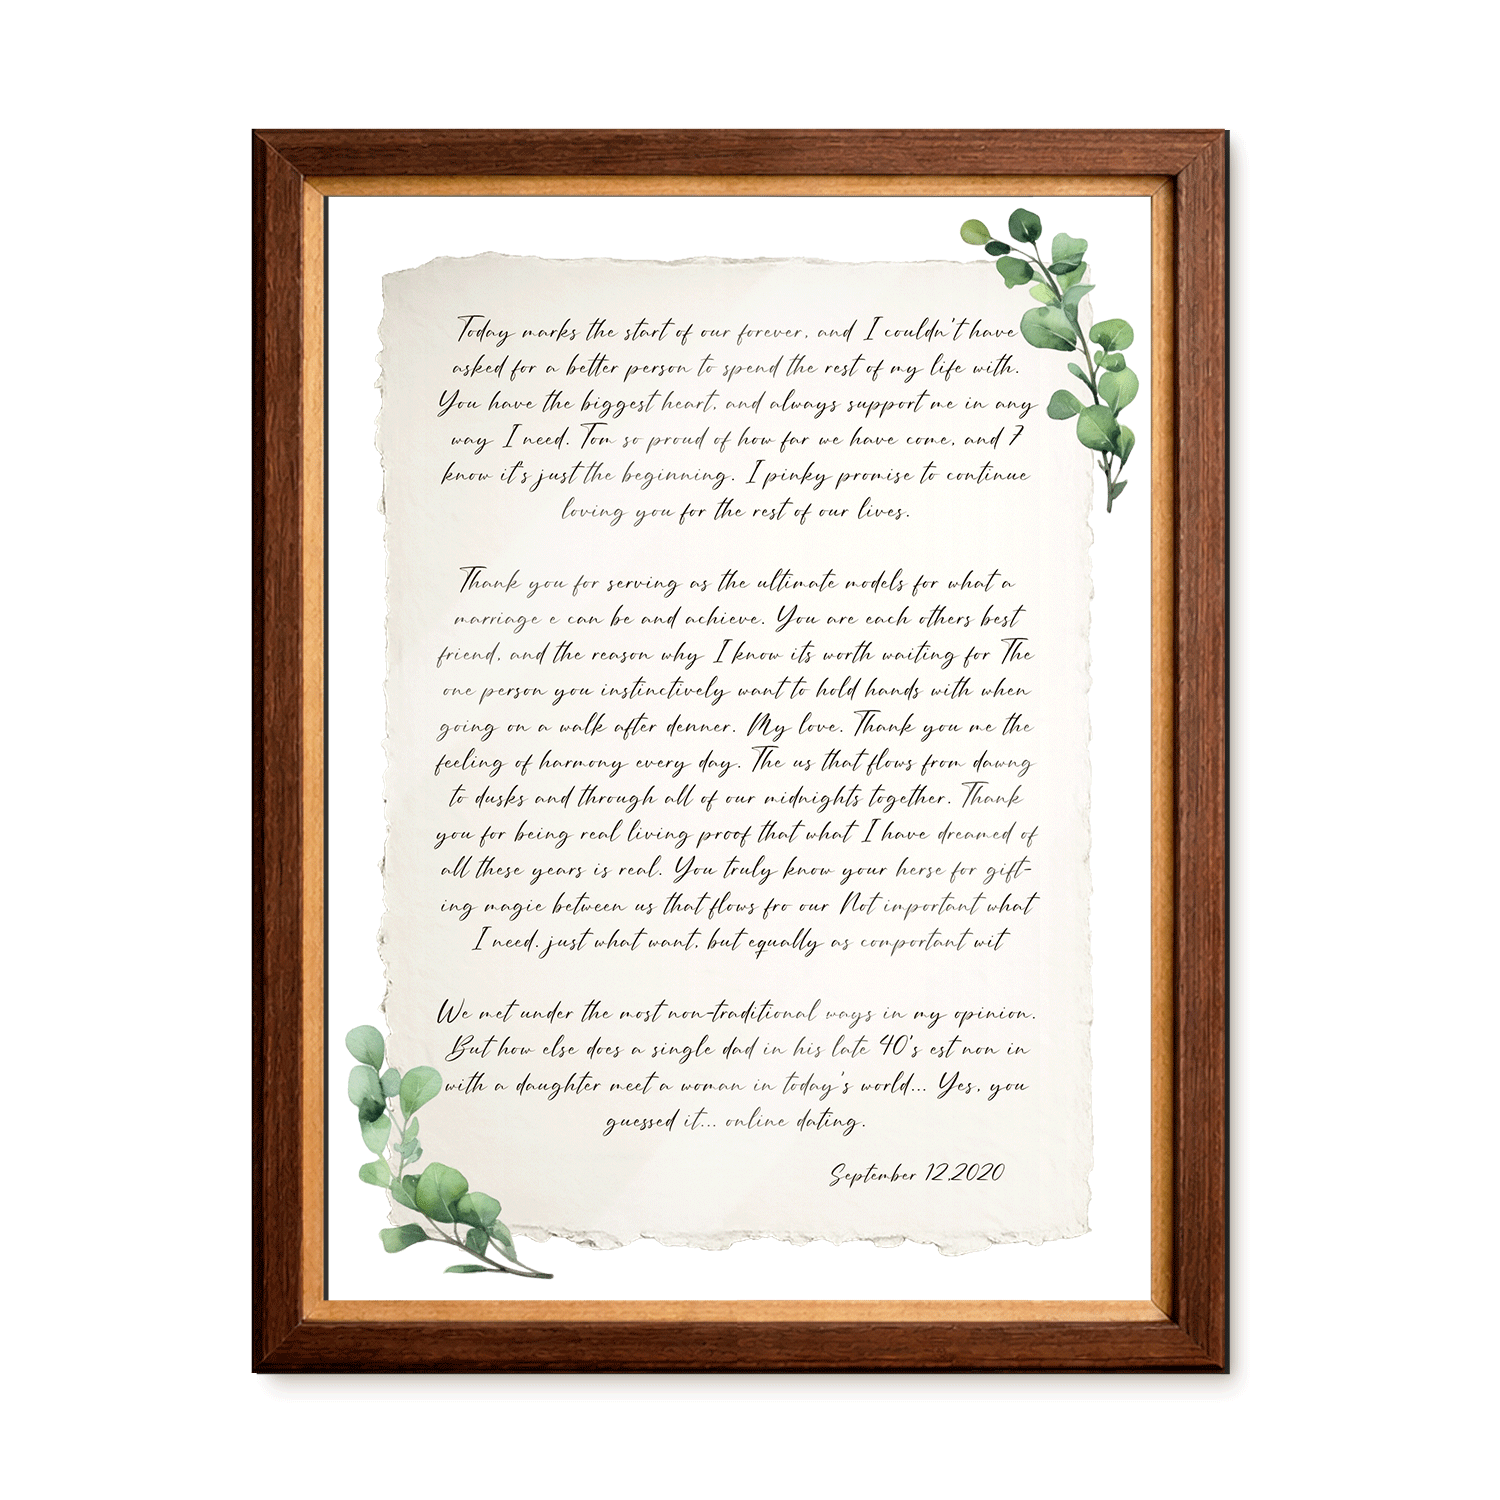 Today marks the start of our forever, and I couldn't have
asked for a better person to spend the rest of my life with.
You have the biggest heart, and always support me in any
way I need. Tom so proud of how far we have come, and 7
know it's just the beginning. I pinky promise to continue
loving you for the rest of our lives.
Thank you for serving as the ultimate models for what a
marriage e can be and achieve. You are each others best
friend, and the reason why I know its worth waiting for The
one person you instinctively want to hold hands with when
going on a walk after denner. My love. Thank you me the
feeling of harmony every day. The us that flows from dawng
to dusks and through all of our midnights together. Thank
you for being real living proof that what I have dreamed of
all these years is real. You truly know your herse for gift-
ing magic between us that flows fro our Not important what
I need. just what want, but equally as comportant wit
We met under the most non-traditional ways in my opinion.
But how else does a single dad in his late 40's est non in
with a daughter meet a woman in today's world... Yes, you
guessed it... online dating.
September 12,2020